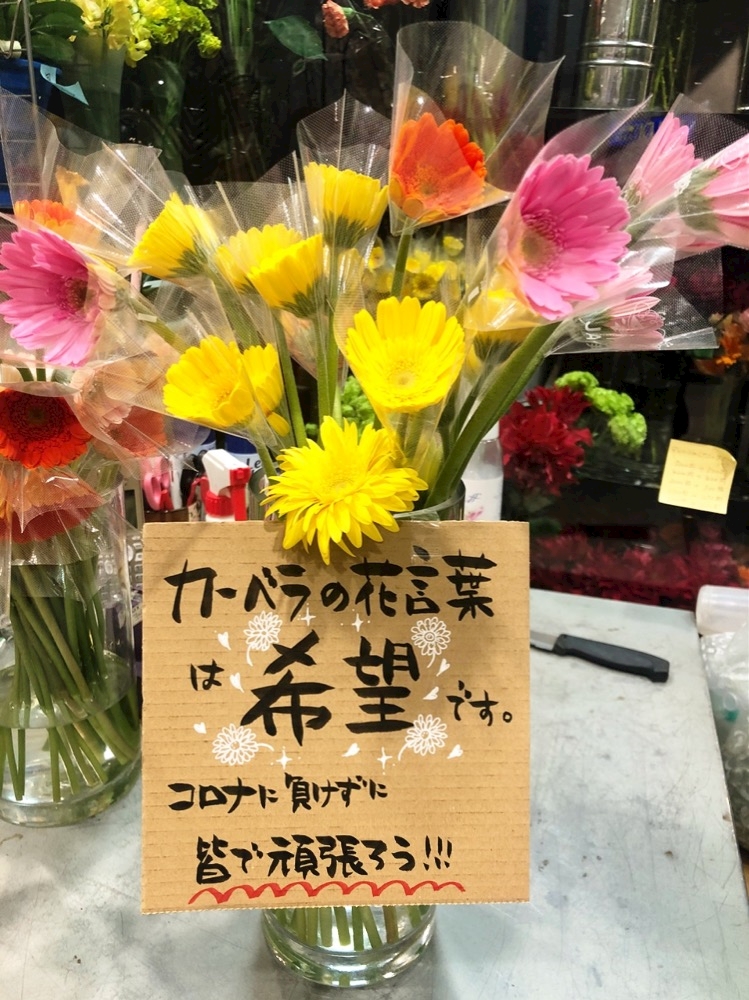 カーベラの花言葉
は希望です。
コロナに負けずに
皆で頑張ろう!!!